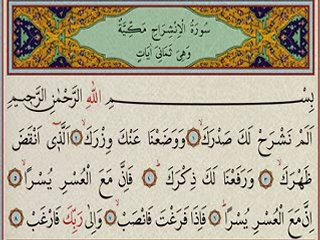 سُورَةُ الْاِنْشِرَاحِ مَكِّيَّةٌ
وَهِيَ ثَمَانِيَ اٰيَاتٍ
بِسْــــــمِ اللهِ الرَّحْمٰنِ الرَّحِيمِ
اَلَمْ نَشْرَحْ لَكَ صَدْرَكَ ١ وَوَضَعْنَا عَنْكَ وِزْرَكَ ٢ اَلَّذٓى اَنْقَضَ
ظَهْرَكَ ٣ وَرَفَعْنَا لَكَ ذِكْرَكَ ٤ فَاِنَّ مَعَ الْعُسْرِ يُسْرًا ٥
اِنَّ مَعَ الْعُسْرِ يُسْرًا ٦ فَاِذَا فَرَغْتَ فَانْصَبْ ٧ وَاِلٰى رَبِّكَ فَارْغَبْ ٨